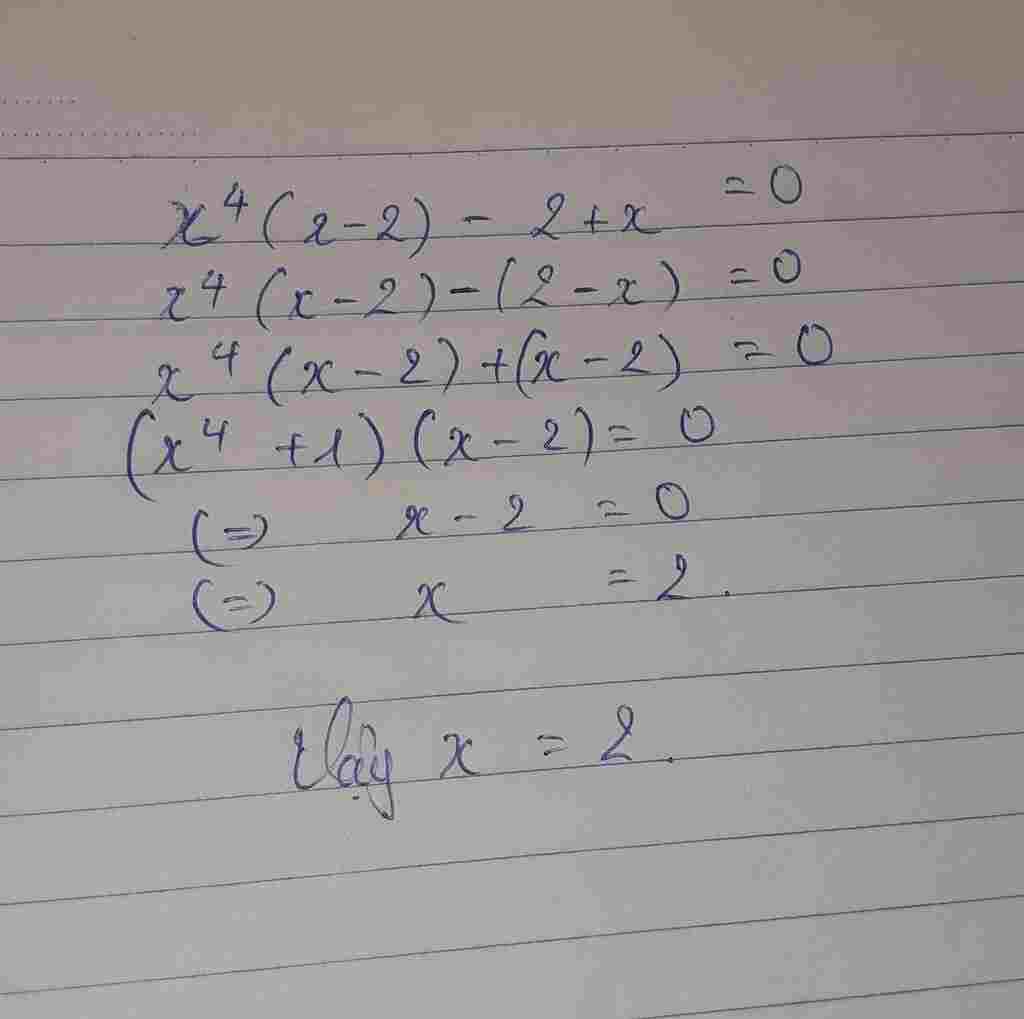 x⁴(x-2) - 2+x = 0
x⁴(x-2)-(2-x) = 0
x⁴(x-2)+(x-2) = 0
(x⁴+1)(x-2) = 0
(=) x-2 = 0
(=) x = 2.
Vậy x = 2.